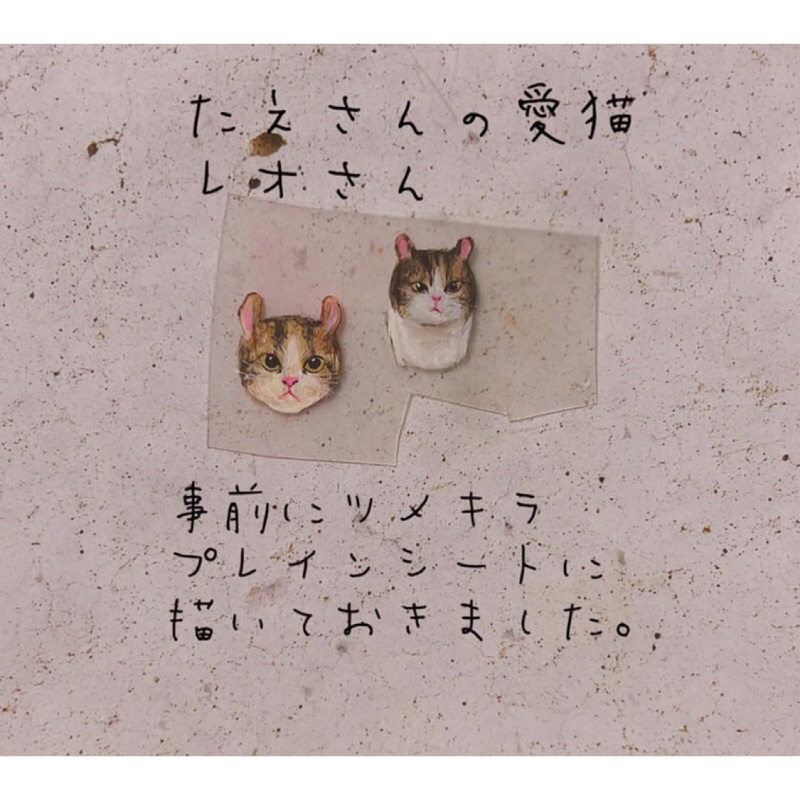 たえさんの愛猫
レオさん
事前にツメキラ
プレインシートに
描いておきました。